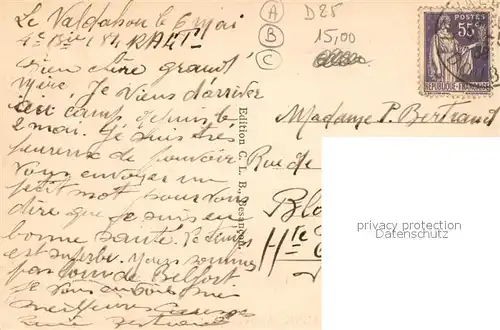 Le Valdahon le 6 mai
4e Bie
Bien chère grand'
Mère, Je Viens d'arriver
au camp depuis le
2 mai. Je suis très
heureuse de pouvoir
Vous envoyer un
petit mot pour vous
dire que je suis en
bonne santé. Le temps
est superbe. Nous sommes
pas loin de Belfort
Je vous envoie mes
meilleures
Edition C. L. B., Besançon.
A D25
B 15,00
C
POSTES
55c
REPUBLIQUE FRANÇAISE
Madame P. Bertrand
Rue de
Blo
privacy protection
Datenschutz